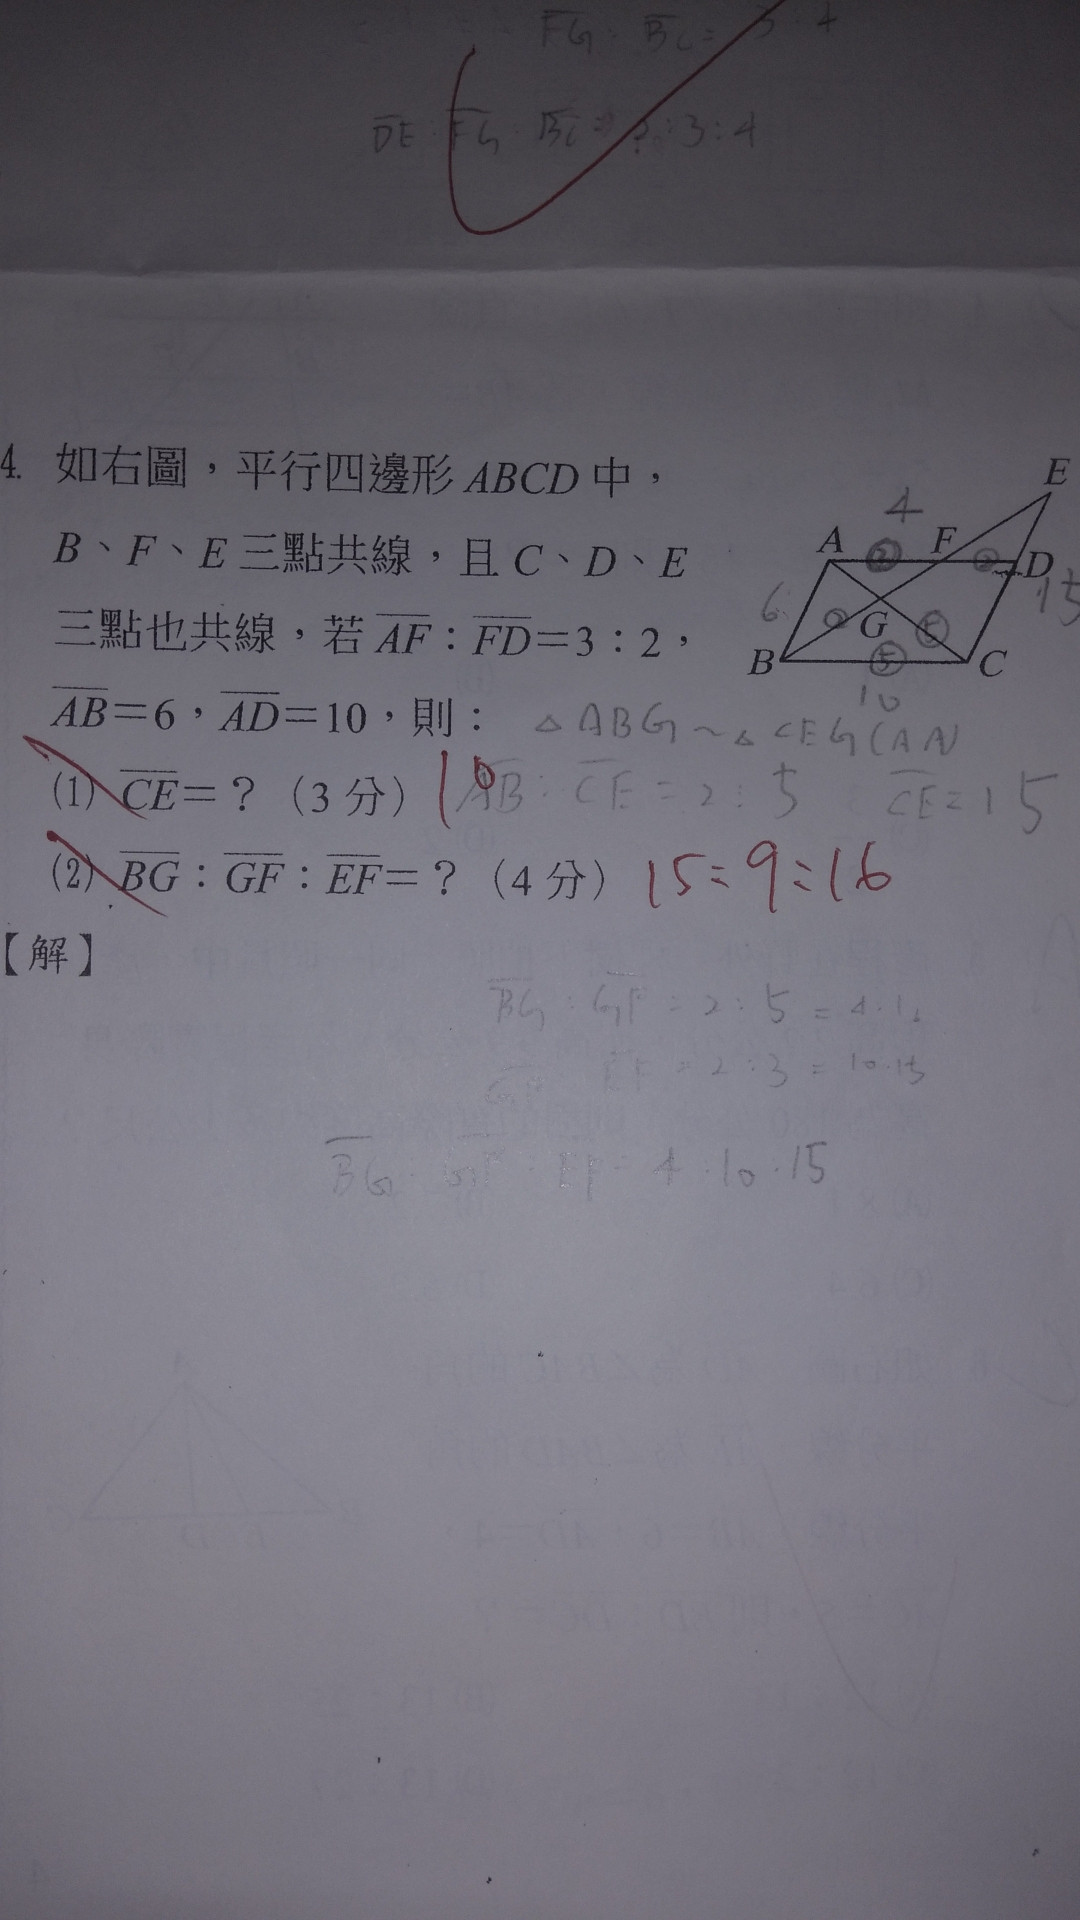 FG : BC = 3 : 4
DE : FG : BC = ? : 3 : 4
4. 如右圖，平行四邊形 ABCD 中，
B、F、E 三點共線，且 C、D、E
三點也共線，若 AF：FD＝3：2，
AB＝6，AD＝10，則：
(1) CE＝？（3 分）
(2) BG：GF：EF＝？（4 分） 15:9:16
【解】
E
4
A 2 F 2 D
6 2 G 5 15
B 5 C
10
△ABG~△CEG(AA)
10
AB : CE = 2 : 5 CE = 15
BG : GF = 2 : 5 = 4 : 10
GF : EF = 2 : 3 = 10 : 15
BG : GF : EF = 4 : 10 : 15